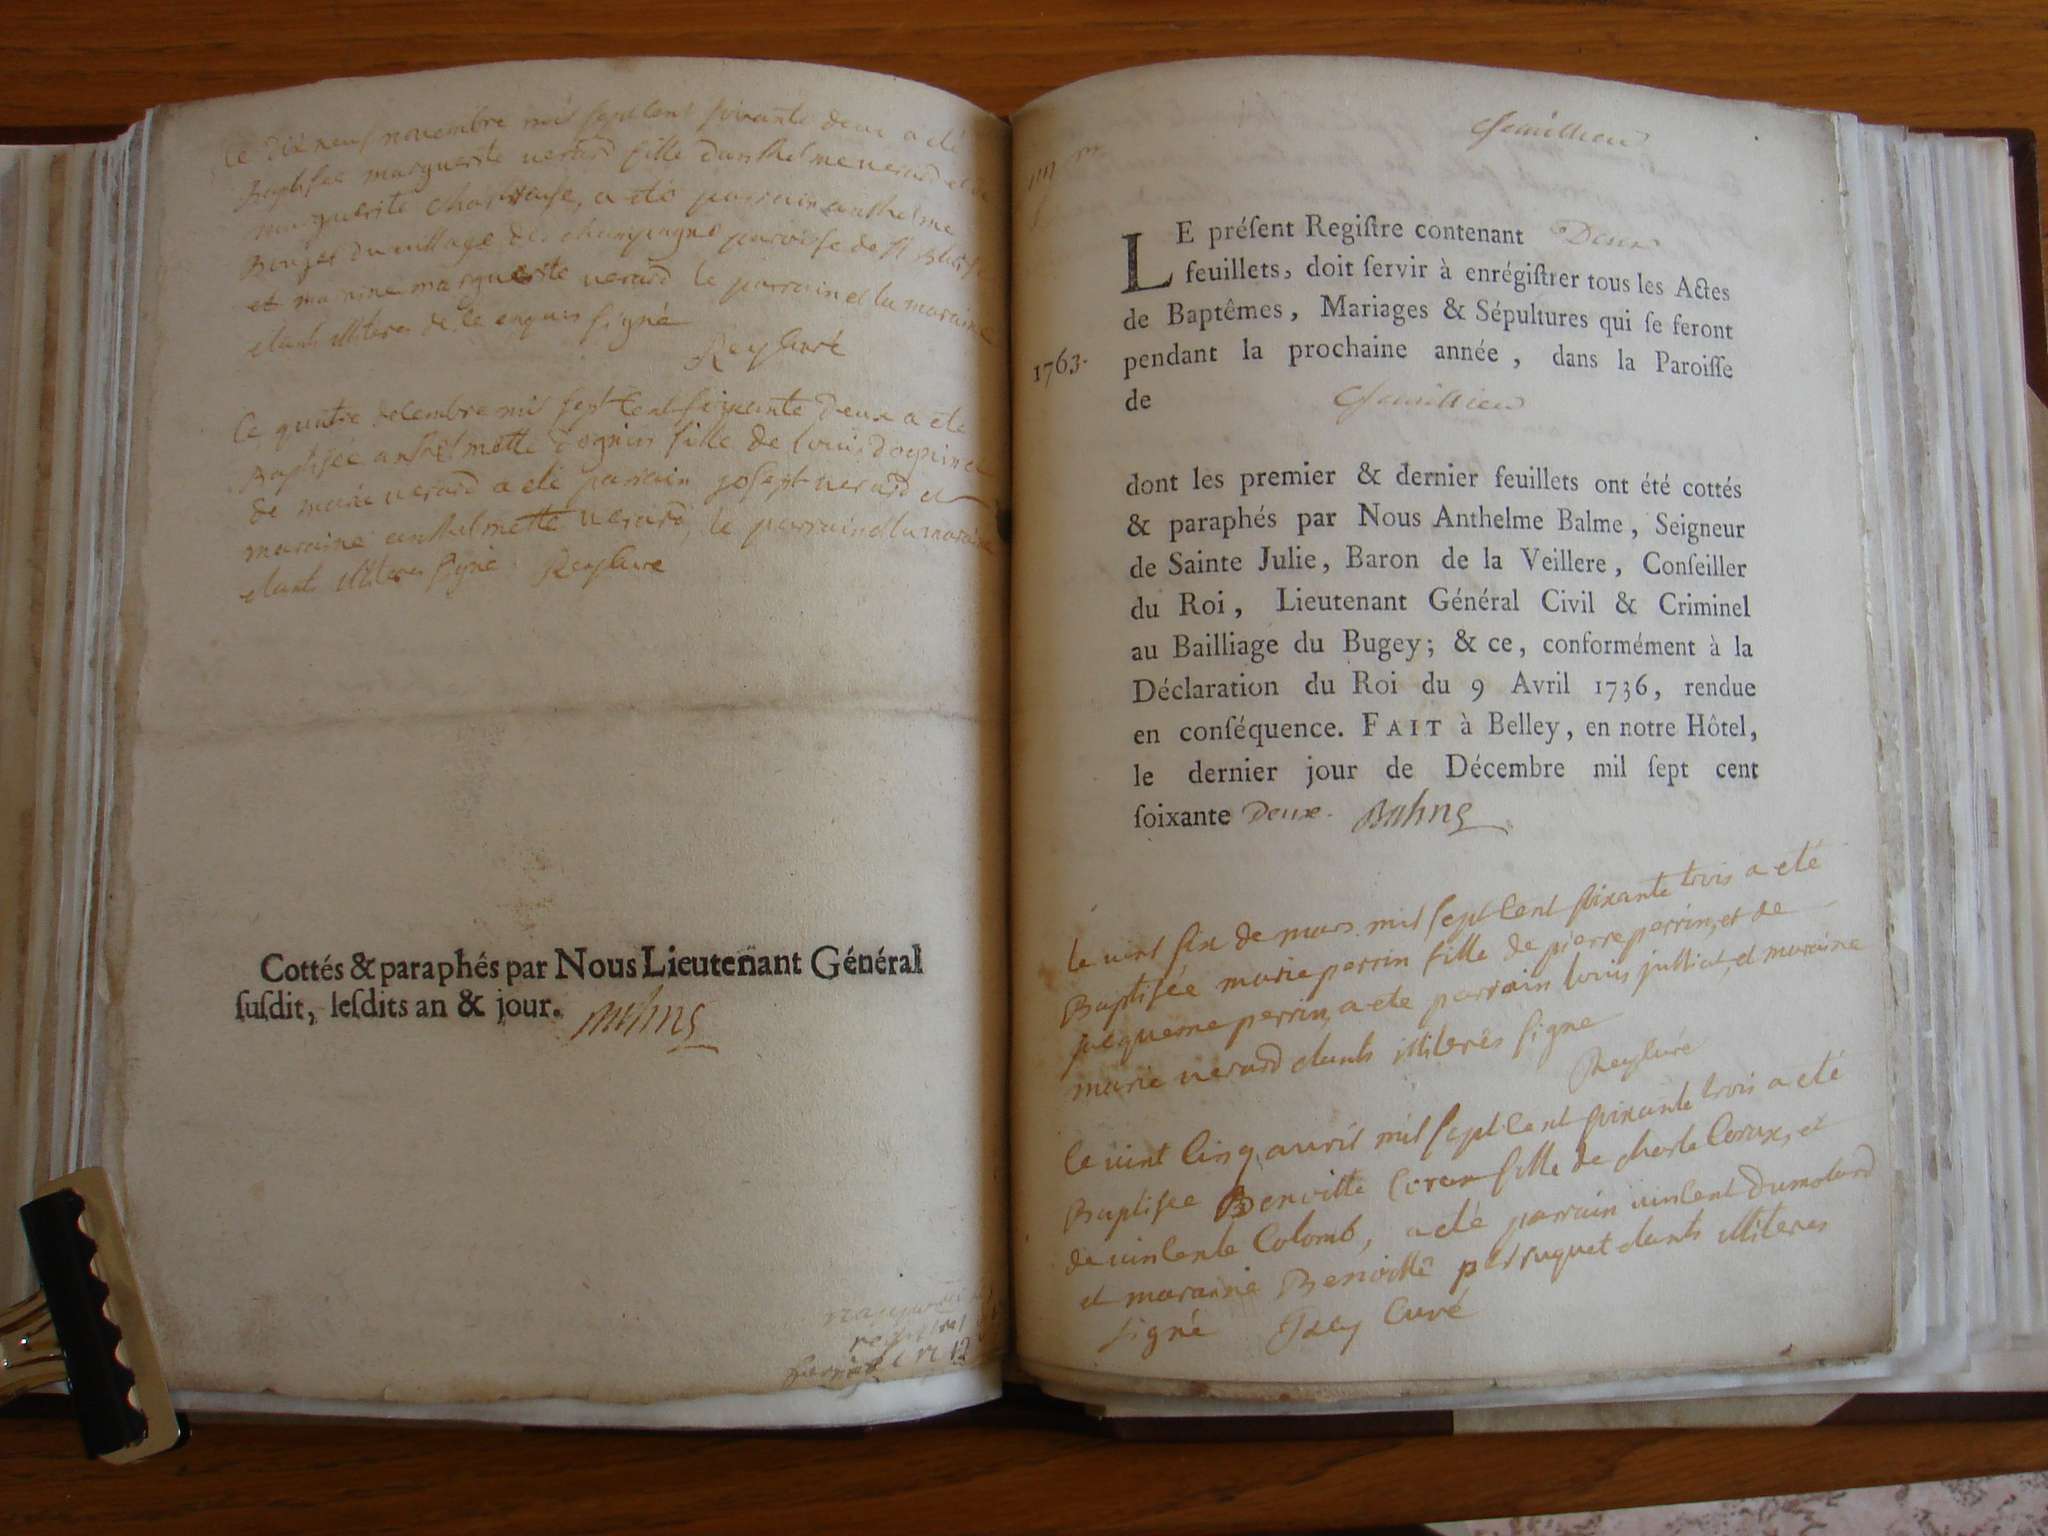 Le dix neuf novembre mil sept cent soixante deux a été
Baptisée marguerite verard fille d'anthelme verard et de
marguerite a été parrain anthelme
Bouget du village de champagne paroisse de st
et maraine marguerite verard le parrain et la maraine
étants illiteres de ce enquis signé
Rey Curé
Le quatre decembre mil sept cent soixante deux a été
Baptisée anthelmette fille de louis
de marie verard a été parrain joseph verard et
maraine anthelmette verard, le parrain et la maraine
étants illiteres signé Rey Curé
Cottés & paraphés par Nous Lieutenant Général
ſuſdit, leſdits an & jour.
12
LE préſent Regiſtre contenant Deux
feuillets, doit ſervir à enrégiſtrer tous les Actes
de Baptêmes, Mariages & Sépultures qui ſe feront
1763. pendant la prochaine année, dans la Paroiſſe
de
dont les premier & dernier feuillets ont été cottés
& paraphés par Nous Anthelme Balme, Seigneur
de Sainte Julie, Baron de la Veillere, Conſeiller
du Roi, Lieutenant Général Civil & Criminel
au Bailliage du Bugey; & ce, conformément à la
Déclaration du Roi du 9 Avril 1736, rendue
en conſéquence. FAIT à Belley, en notre Hôtel,
le dernier jour de Décembre mil ſept cent
ſoixante Deux.
le vint six de mars mil sept cent soixante trois a été
Baptisée marie perrin fille de pierre perrin, et de
jacqueme perrin, a été parrain louis julliat, et maraine
marie verard étants illiterés signe
Rey Curé
Le vint cinq avril mil sept cent soixante trois a été
Baptisée Benoitte fille de charle Corux, et
de vincente Colomb, a été parrain vincent dumolard
et maraine Benoitte perruquet étants illiteres
signé Rey Curé